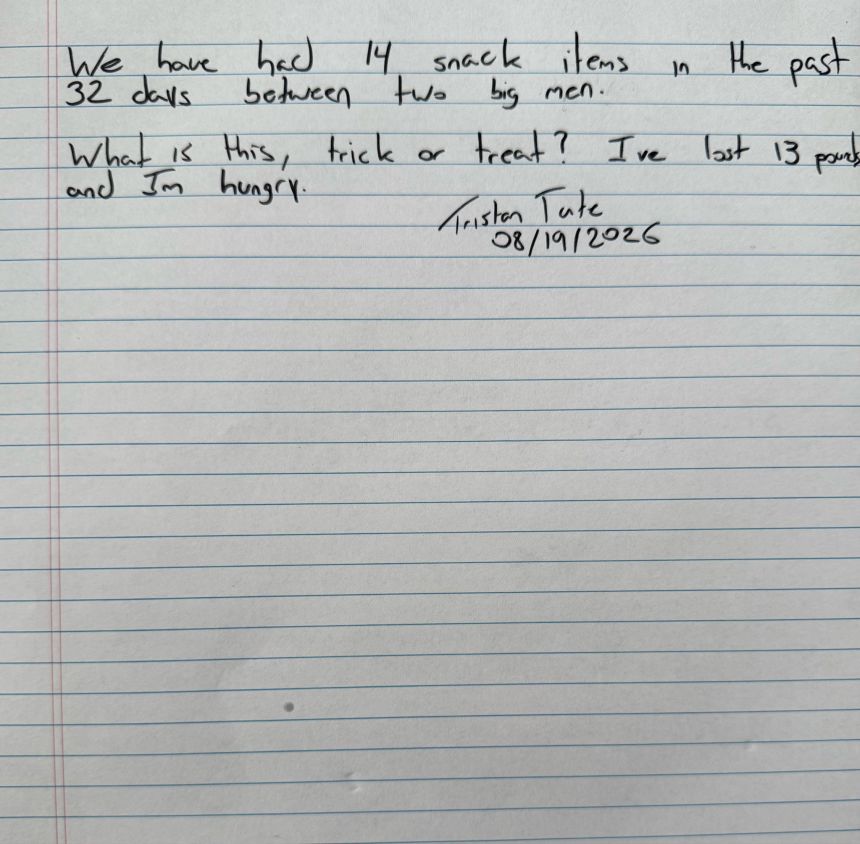 We have had 14 snack items in the past
32 days between two big men.
What is this, trick or treat? I've lost 13 pounds
and I'm hungry.
Tristan Tate
08/19/2026